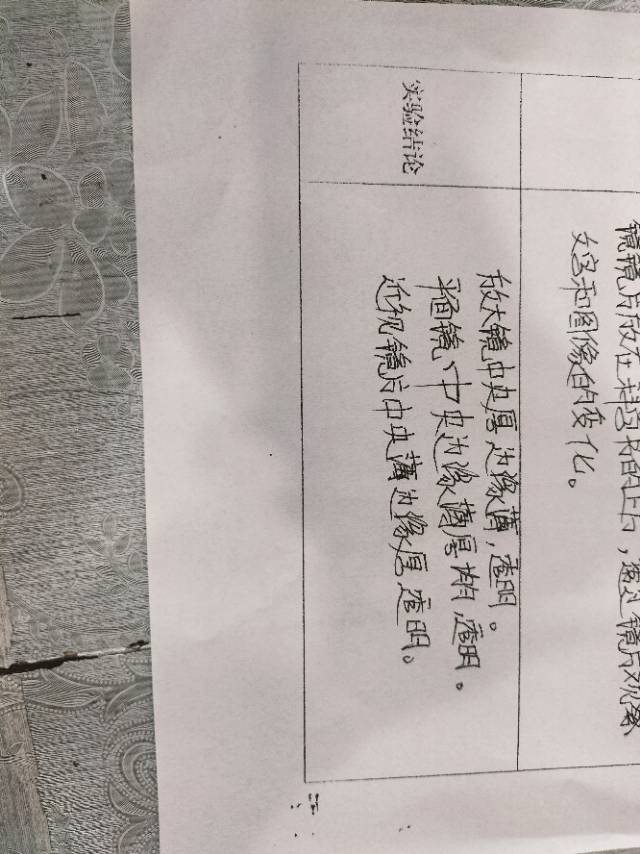 镜镜片放在科学书的上白,透过镜片观察
文字和图像的变化。
实验结论
放大镜中央厚边缘薄,透明。
平面镜、中央边缘薄厚均,透明。
近视镜片中央薄边缘厚,透明。